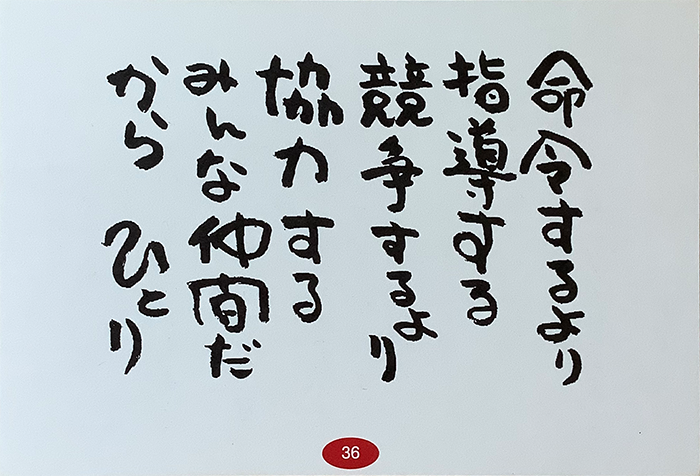 命令するより
指導する
競争するより
協力する
みんな仲間だ
から ひとり
36